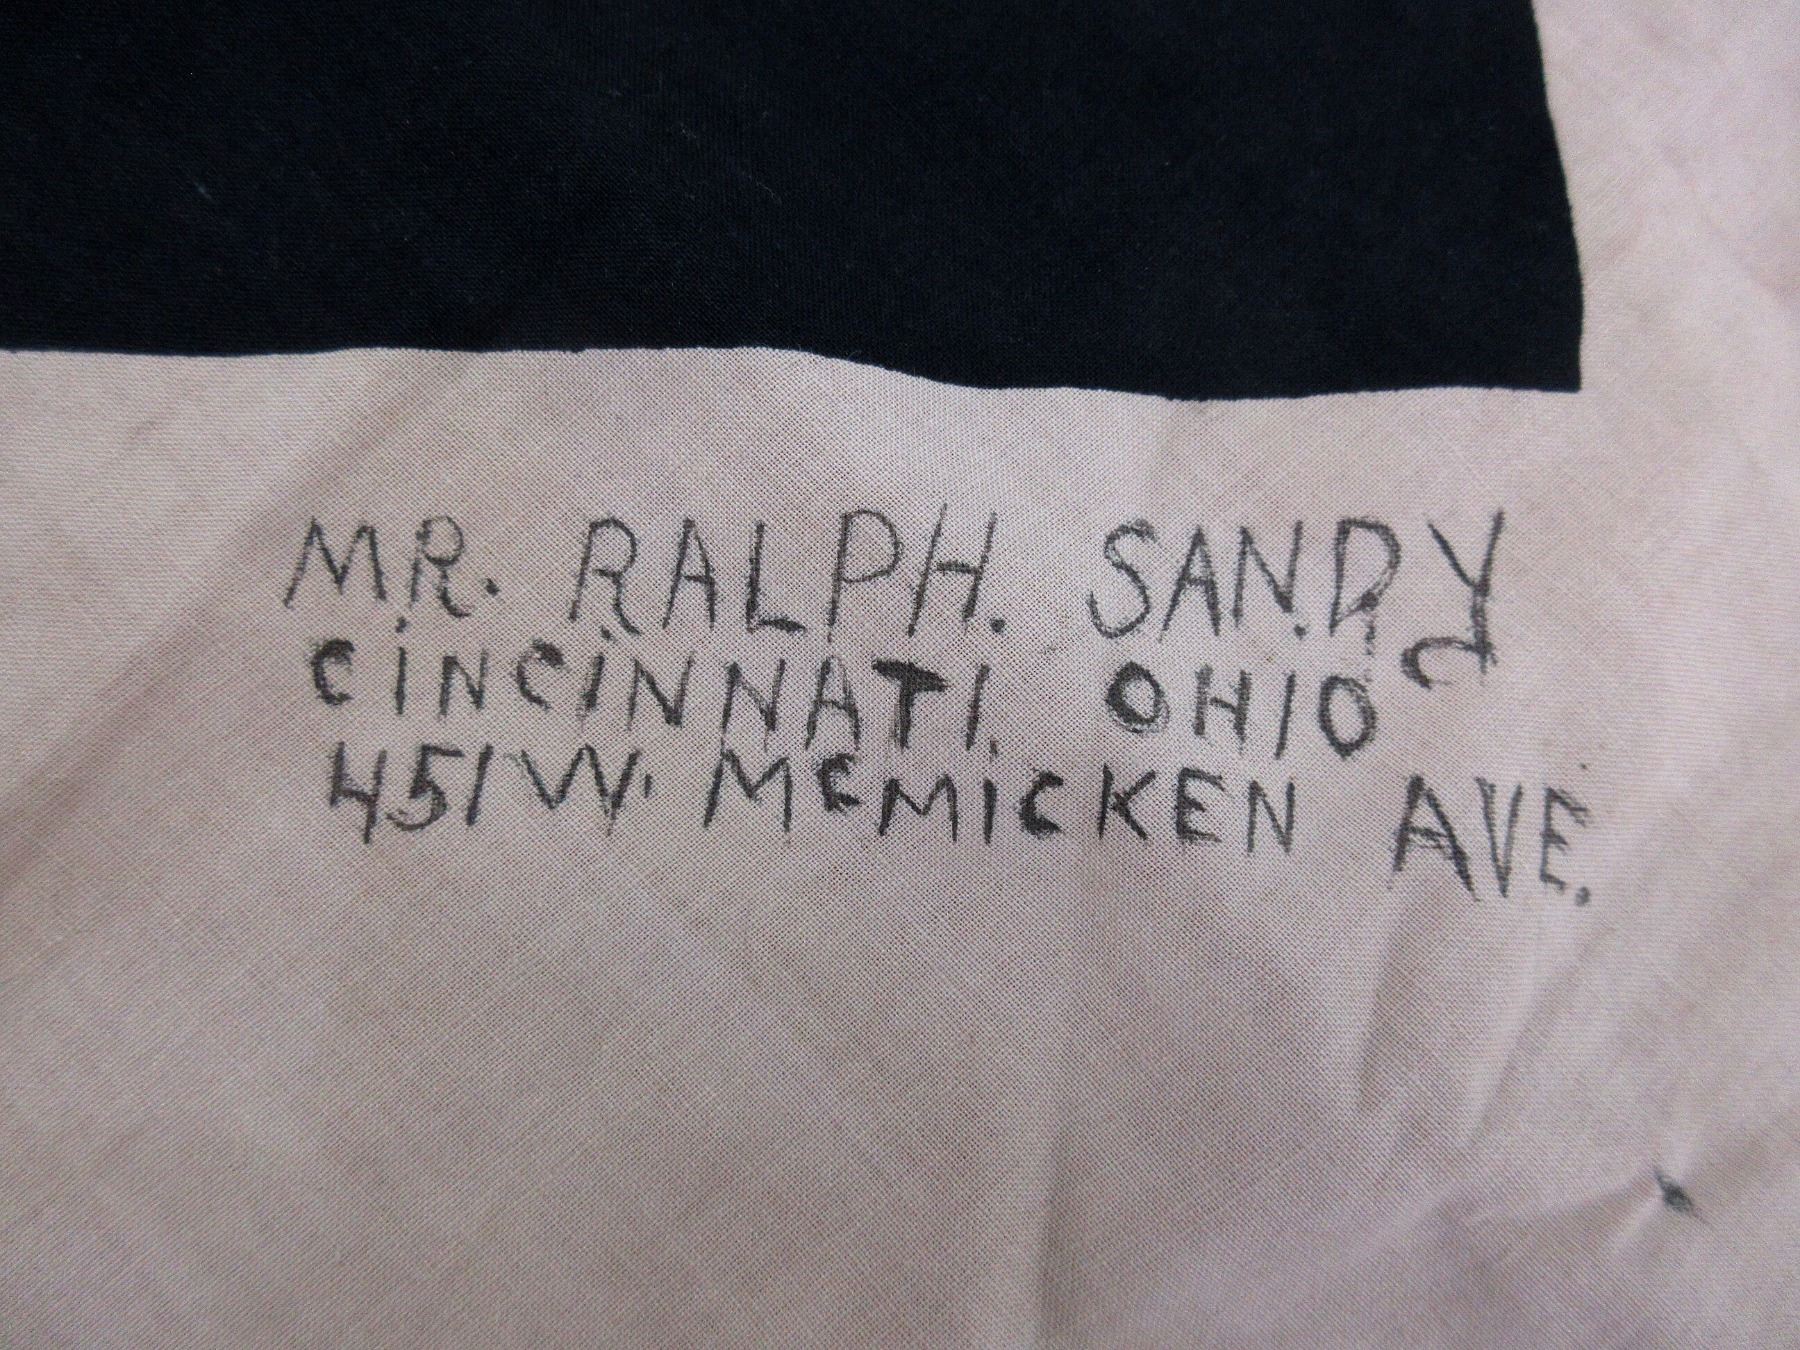 MR. RALPH. SANDY
CiNCiNNATI. OHIO
451 W. McMICKEN AVE.